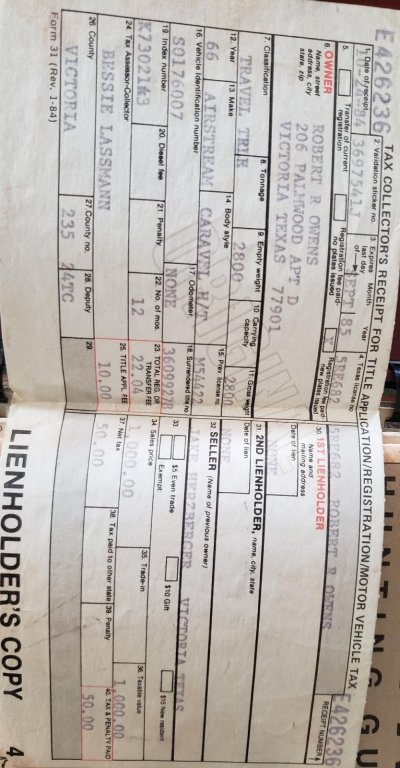 E426236 TAX COLLECTOR'S RECEIPT FOR TITLE APPLICATION/REGISTRATION/MOTOR VEHICLE TAX E426236
RECEIPT NUMBER
1. Date of receipt 2. Validation sticker no. 3. Expires last day of Month Year 4. Texas license no.
10-24-84 3697541J SEPT 85 5RF682 ROBERT R OWENS
5. Transfer of current registration Registration fee paid- no plates issued X Registration fee paid- new plates issued
6. OWNER
Name, street address, city state, zip
ROBERT R OWENS
206 PALMWOOD APT D
VICTORIA TEXAS 77901
7. Classification 8. Tonnage 9. Empty weight 10. Carrying capacity 11. Gross weight
TRAVEL TRLR 2800 2800
12. Year 13. Make 14. Body style 15. Prev. license no.
66 AIRSTREAM CARAVEL H/T M54422
16. Vehicle identification number 17. Odometer 18. Surrendered title no.
S0176007 NONE
19. Index number 20. Diesel fee 21. Penalty 22. No. of mos. 23. TOTAL REG. OR TRANSFER FEE
12 22.04
24. Tax Assessor-Collector 25. TITLE APPL. FEE
BESSIE LASSMANN 10.00
26. County 27. County no. 28. Deputy 29
VICTORIA 235
Form 31 (Rev. 1-84)
30. 1ST LIENHOLDER
Name and mailing address
Date of lien
NONE
31. 2ND LIENHOLDER, name, city, state
Date of lien
NONE
32. SELLER (Name of previous owner)
HERZBERGER VICTORIA TEXAS
33 $5 Even trade $10 Gift $15 New resident
Exempt
34. Sales price 35. Trade-in 36. Taxable value
1,000.00 1,000.00
37. Net tax 38. Tax paid to other state 39. Penalty 40. TAX & PENALTY PAID
50.00 50.00
LIENHOLDER'S COPY 4